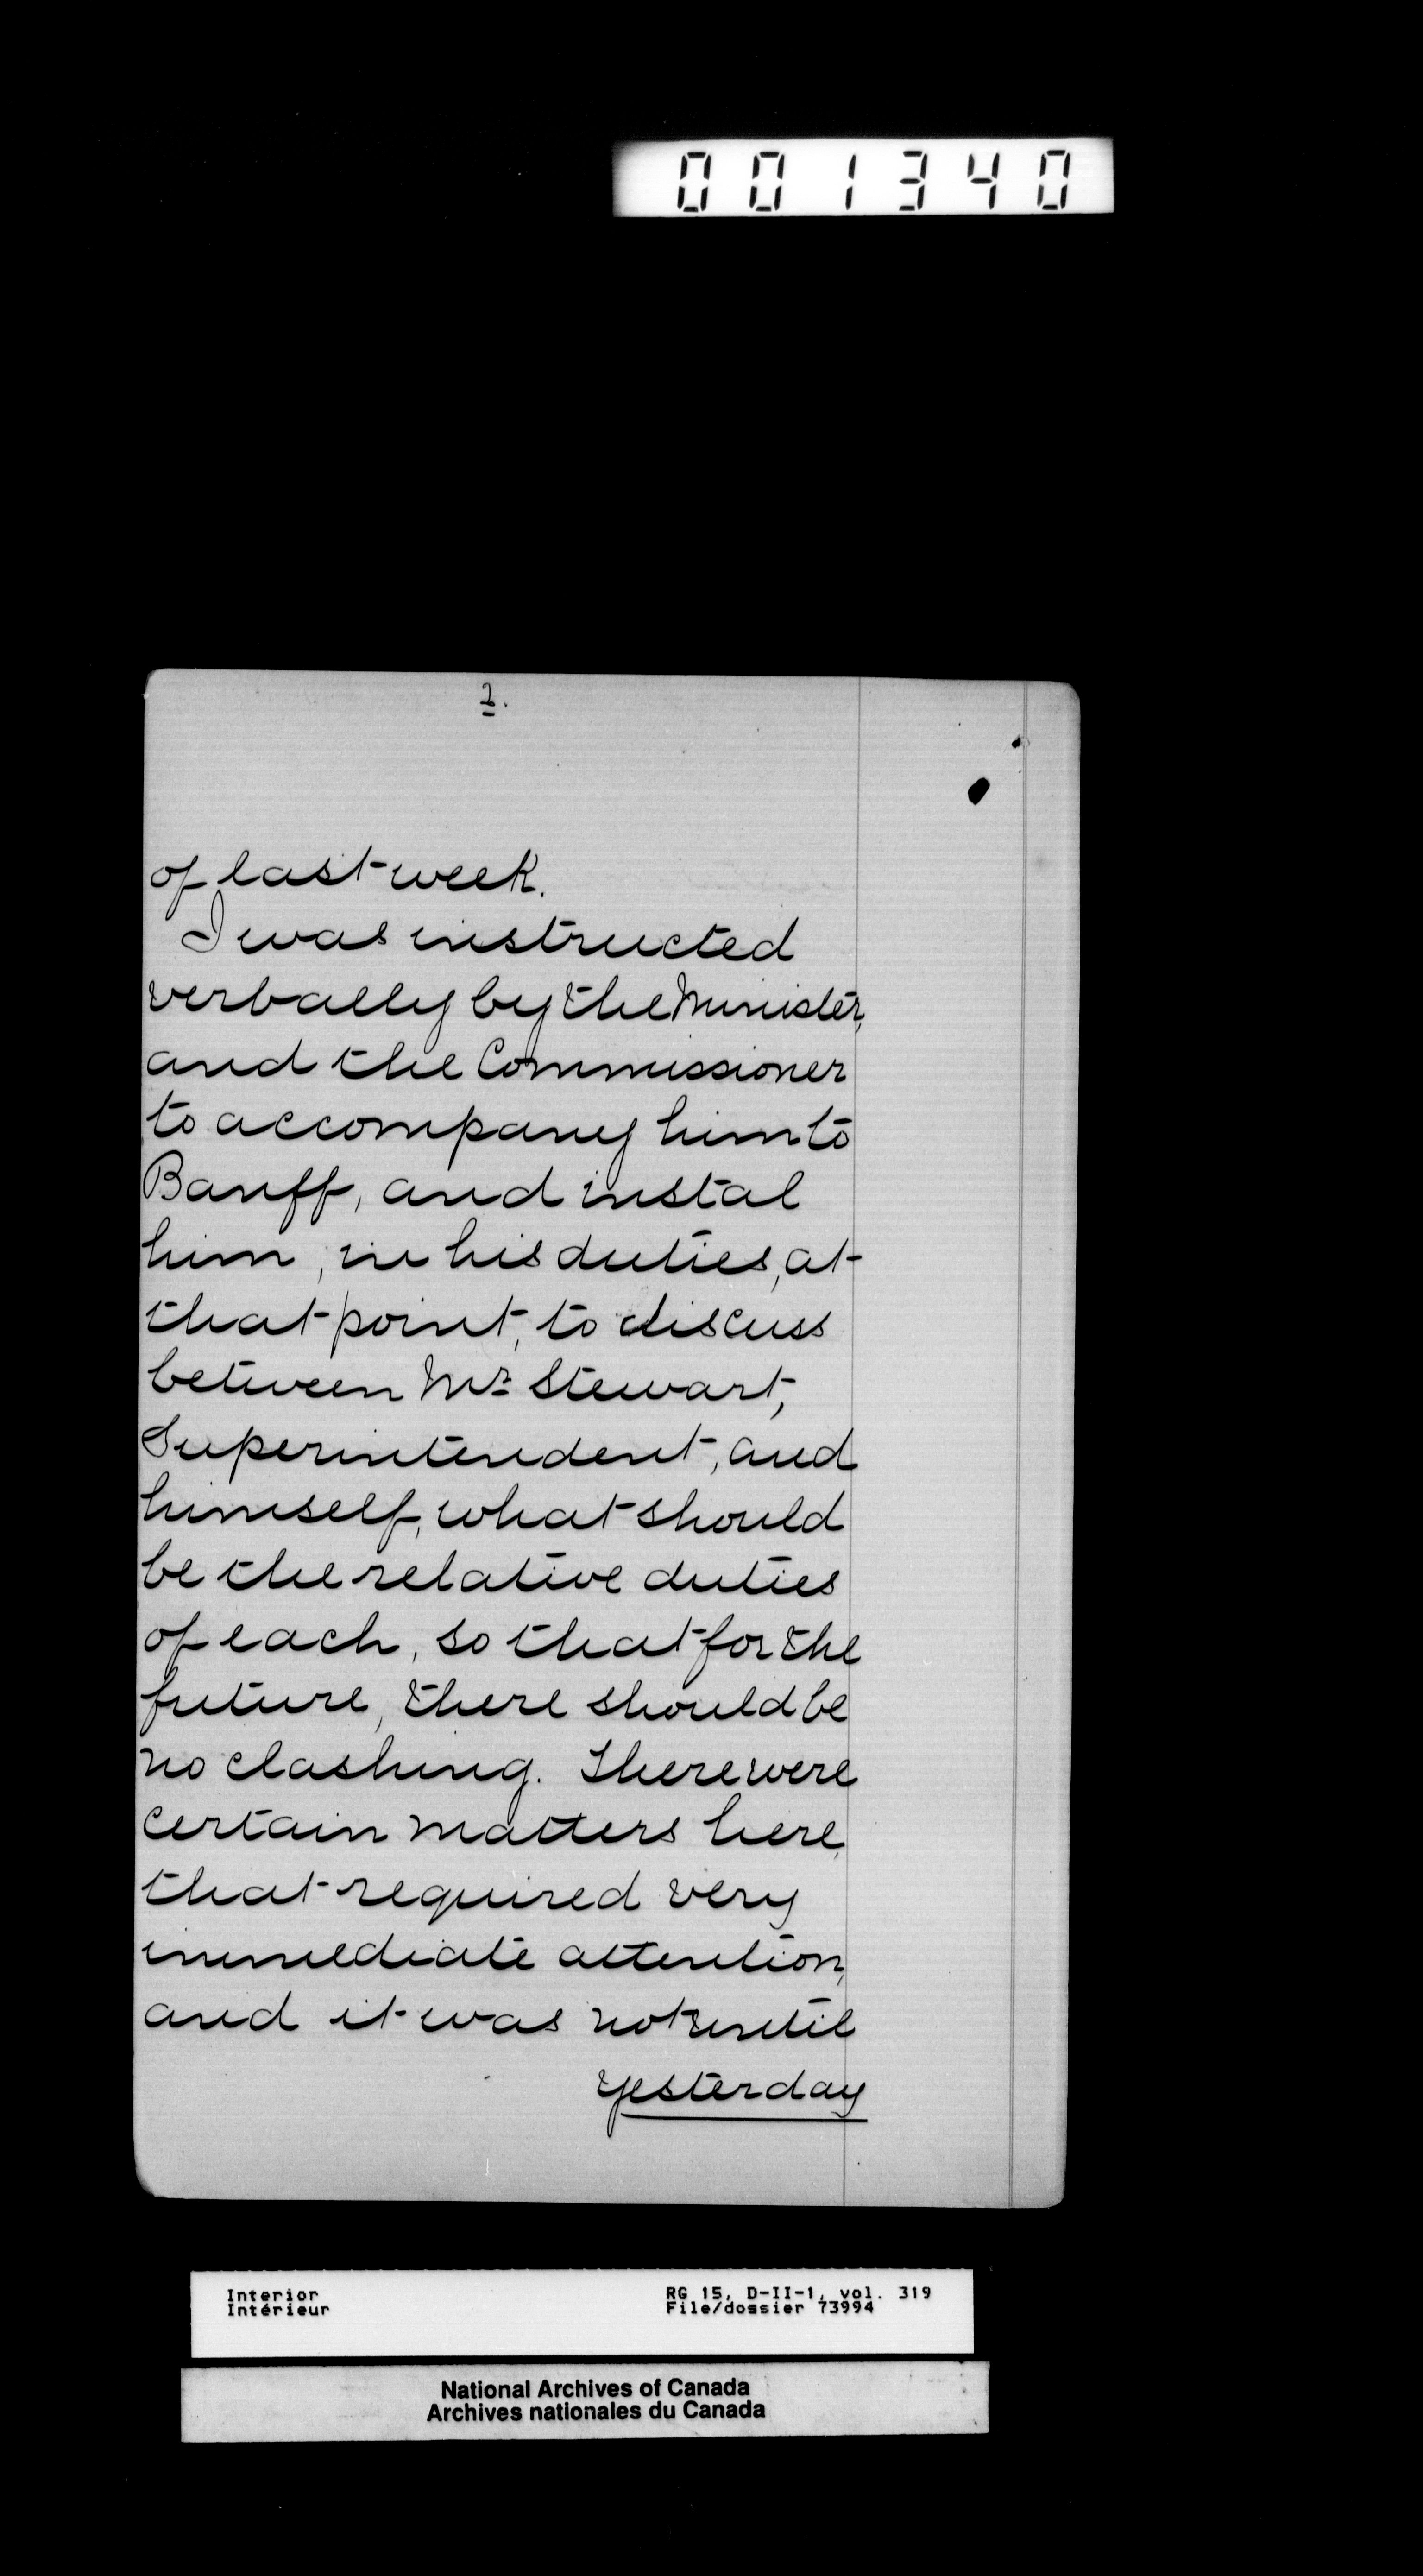 001340
2.
of last week.
I was instructed
verbally by the Minister,
and the Commissioner
to accompany him to
Banff, and instal
him, in his duties, at
that point, to discuss
between Mr. Stewart,
Superintendent, and
himself, what should
be the relative duties
of each, so that for the
future, there should be
no clashing. There were
certain matters here,
that required very
immediate attention,
and it was not until
yesterday
Interior RG 15, D-II-1, vol. 319
Intérieur File/dossier 73994
National Archives of Canada
Archives nationales du Canada